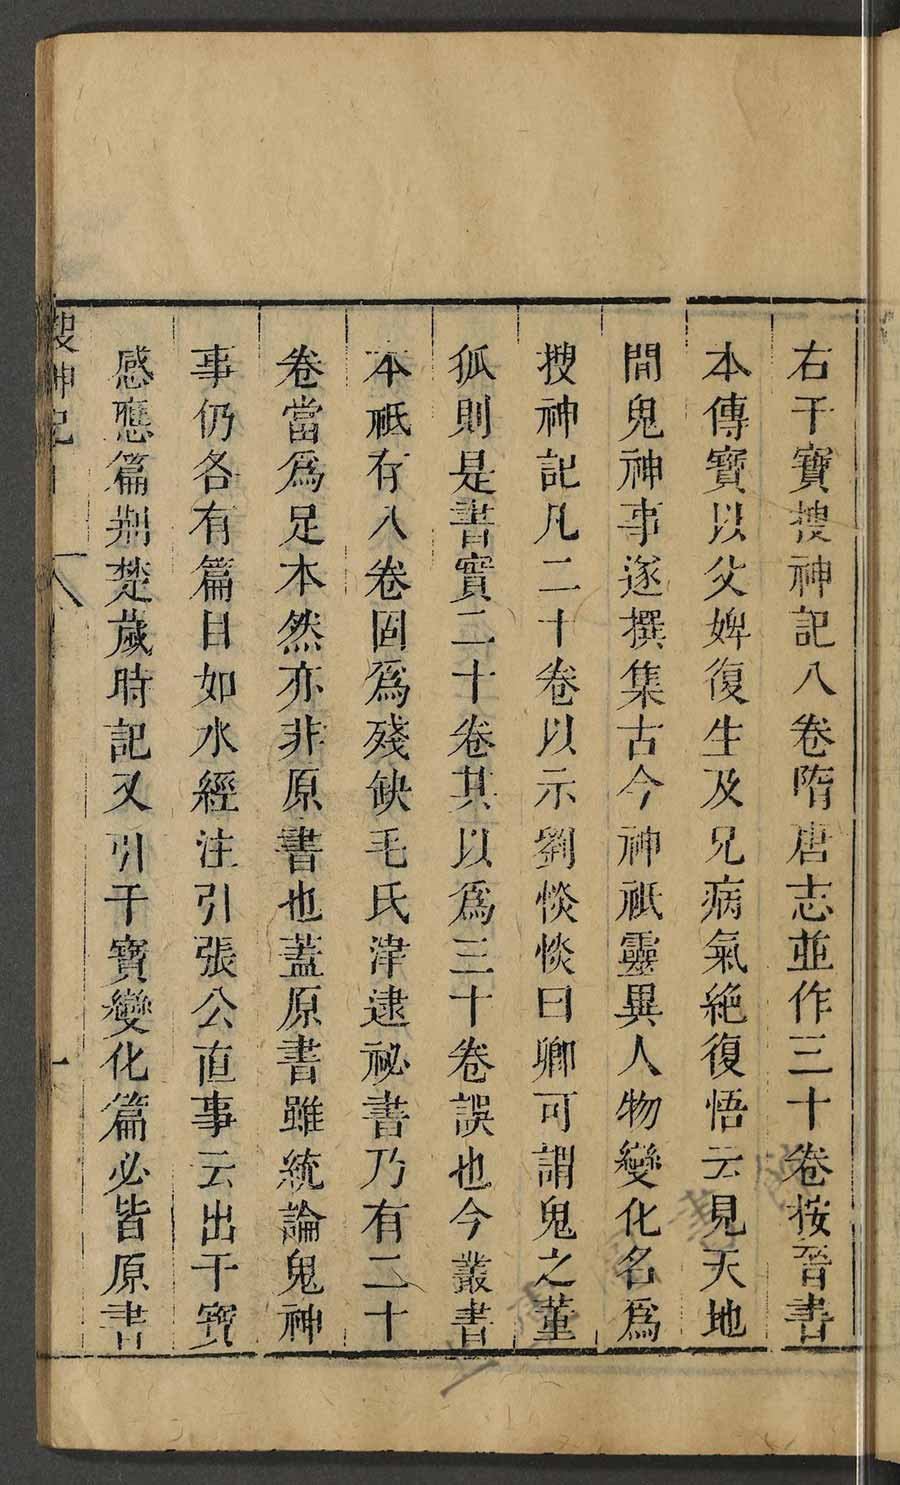 右干寶搜神記八卷隋唐志並作三十卷按晉書
本傳寶以父婢復生及兄病氣絶復悟云見天地
間鬼神事遂撰集古今神祇靈異人物變化名爲
搜神記凡二十卷以示劉惔惔曰卿可謂鬼之董
狐則是書實二十卷其以爲三十卷誤也今叢書
本祗存八卷固爲殘缺毛氏津逮祕書乃有二十
卷當爲足本然亦非原書也蓋原書雖統論鬼神
事仍各有篇目如水經注引張公直事云出干寶
感應篇荆楚歲時記又引干寶變化篇必皆原書
搜神記 八 一